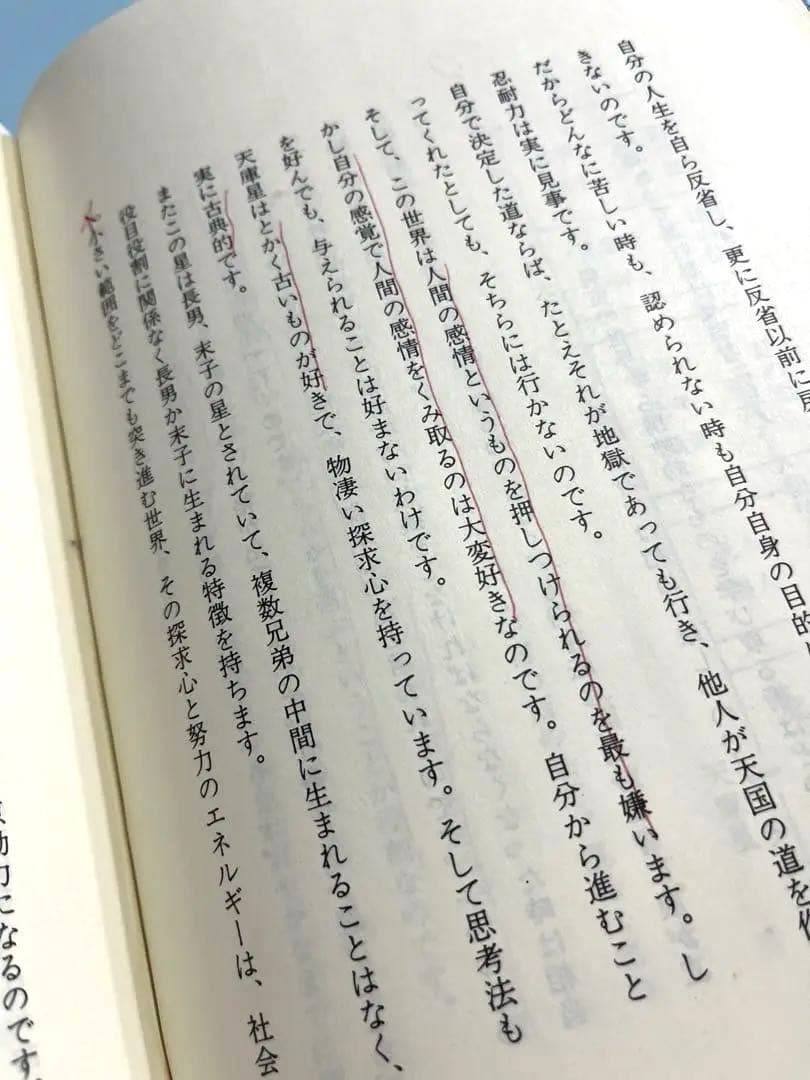 自分の人生を自ら反省し、更に反省以前に
きないのです。
だからどんなに苦しい時も、認められない時も自分自身の目的
忍耐力は実に見事です。
自分で決定した道ならば、たとえそれが地獄であっても行き、他人が天国の道を作
ってくれたとしても、そちらには行かないのです。
そして、この世界は人間の感情というものを押しつけられるのを最も嫌います。し
かし自分の感覚で人間の感情をくみ取るのは大変好きなのです。自分から進むこと
を好んでも、与えられることは好まないわけです。
天庫星はとかく古いものが好きで、物凄い探求心を持っています。そして思考法も
実に古典的です。
またこの星は長男、末子の星とされていて、複数兄弟の中間に生まれることはなく、
役目役割に関係なく長男か末子に生まれる特徴を持ちます。
小さい範囲をどこまでも突き進む世界、その探求心と努力のエネルギーは、社会
になるのです。